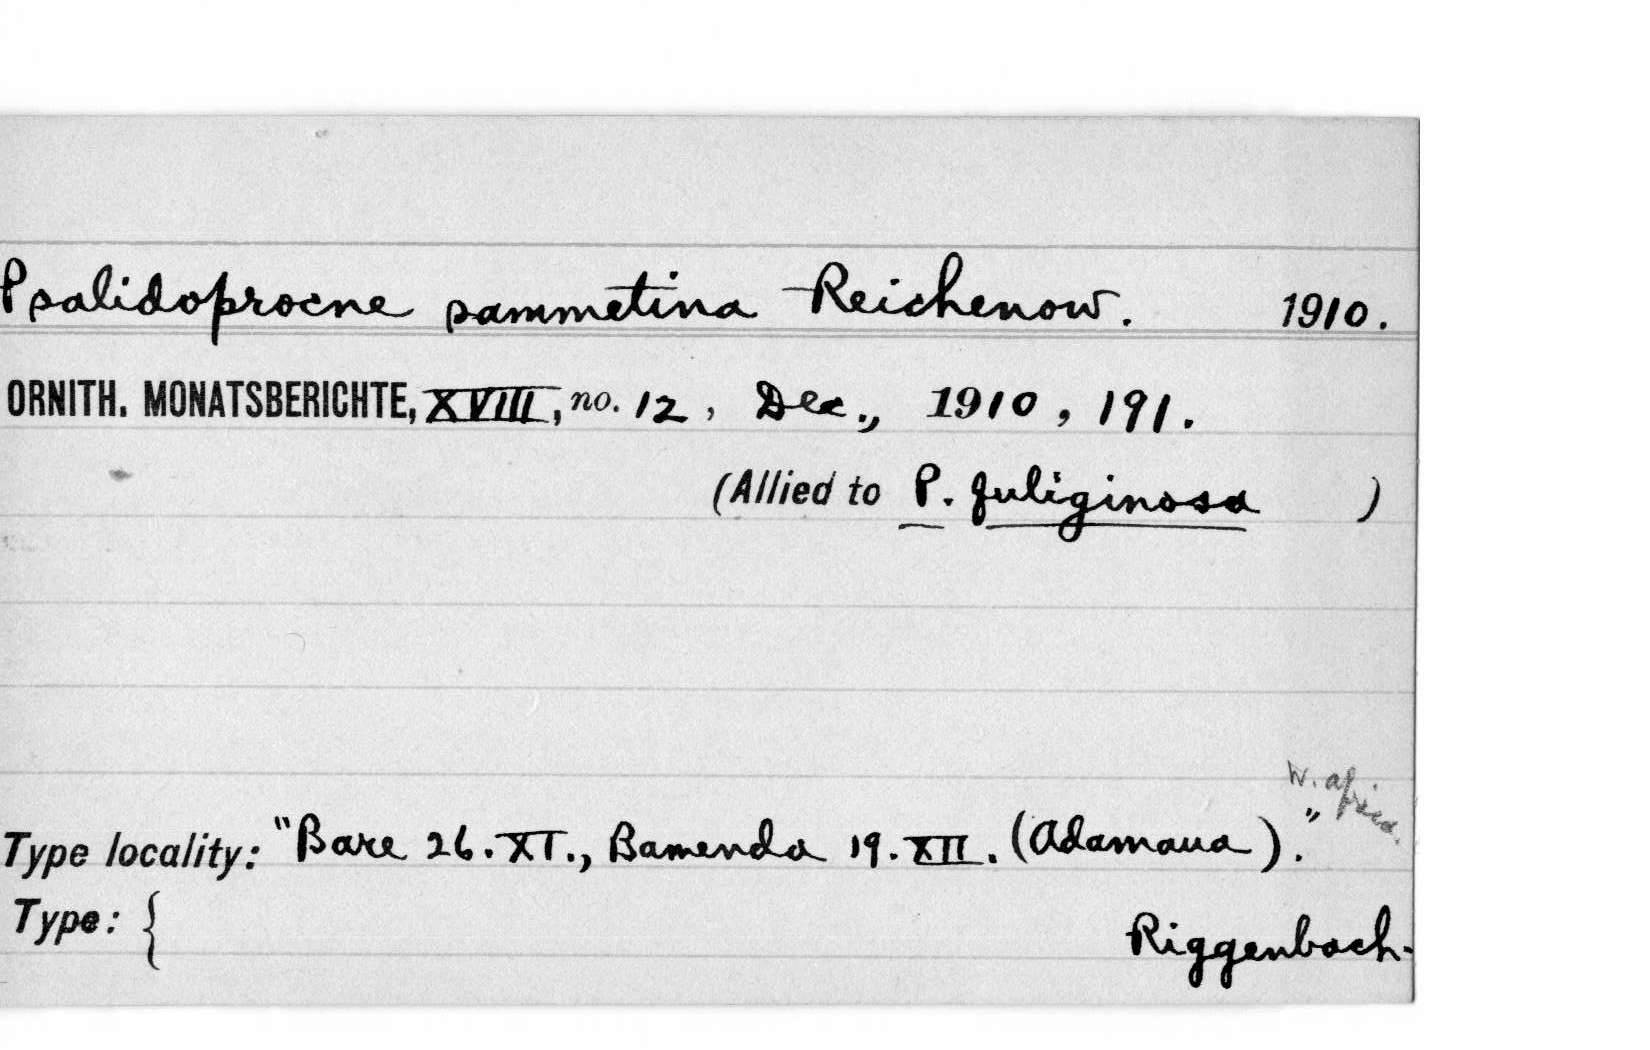 Psalidoprocne sammetina Reichenow. 1910.
ORNITH. MONATSBERICHTE, XVIII, no. 12, Dec., 1910, 191.
(Allied to P. fuliginosa )
W. Africa.
Type locality: "Bare 26.XI., Bamenda 19.XII. (Adamaua)."
Type: { Riggenbach.